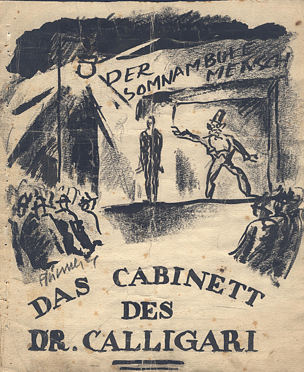 DER
SOMNAMBULE
MENSCH
DAS CABINETT
DES
DR. CALLIGARI